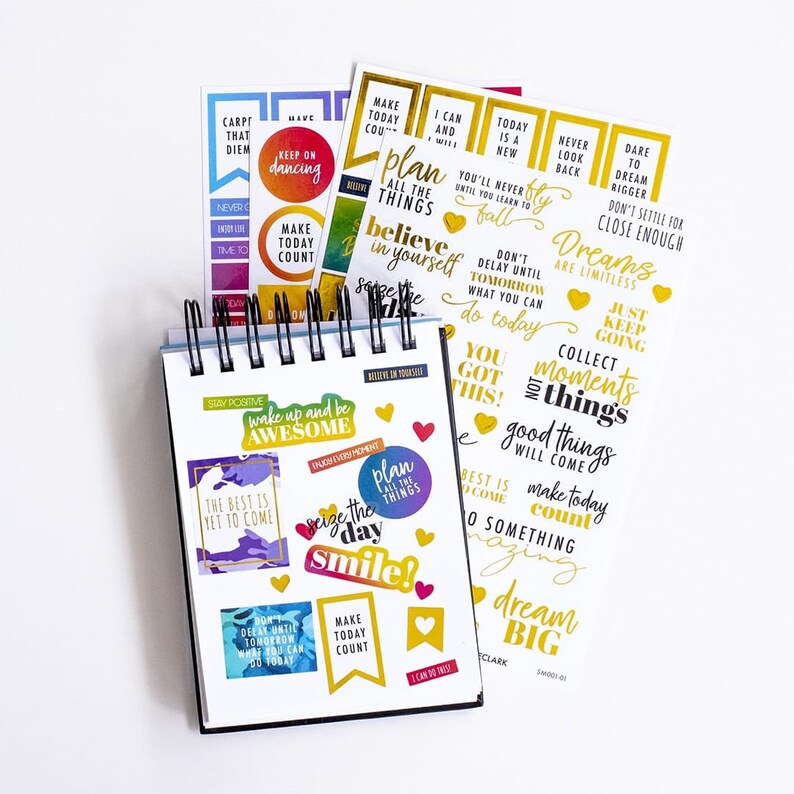 CARPE
THAT
DIEM
MAKE
NEVER G
ENJOY LIFE
TIME TO
TODAY
KEEP ON
dancing
MAKE
TODAY
COUNT
MAKE
TODAY
COUNT
I CAN
AND WILL
TODAY
IS A
NEW
NEVER
LOOK
BACK
DARE
TO
DREAM
BIGGER
BELIEVE IN
plan
ALL THE
THINGS
YOU'LL NEVER fly
UNTIL YOU LEARN TO
fall
DON'T SETTLE FOR
CLOSE ENOUGH
believe
in yourself
DON'T
DELAY UNTIL
TOMORROW
WHAT YOU CAN
do today
Dreams
ARE LIMITLESS
seize the
day
JUST
KEEP
GOING
YOU
GOT
THIS!
COLLECT
moments
NOT things
good things
WILL COME
BEST IS
TO COME
make today
count
DO SOMETHING
amazing
dream
BIG
ECLARK
SM001-01
BELIEVE IN YOURSELF
STAY POSITIVE
wake up and be
AWESOME
ENJOY EVERY MOMENT
plan
ALL THE
THINGS
THE BEST IS
YET TO COME
seize the
day
smile!
DON'T
DELAY UNTIL
TOMORROW
WHAT YOU CAN
DO TODAY
MAKE
TODAY
COUNT
I CAN DO THIS!